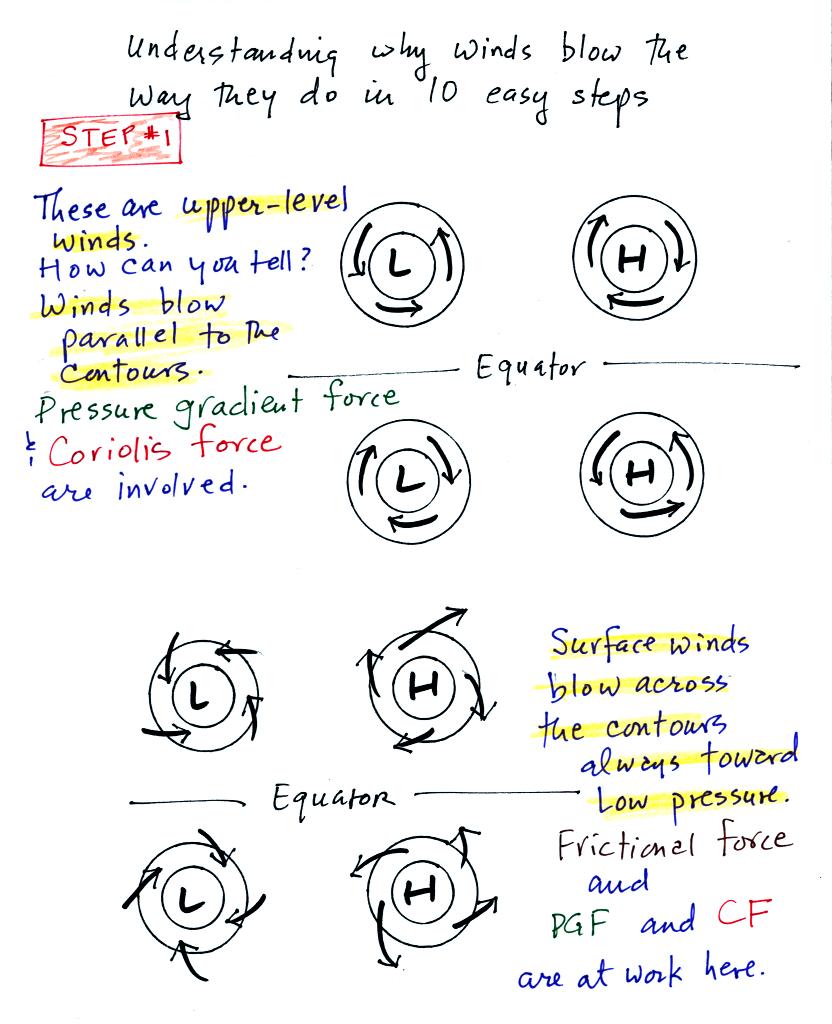 Understanding why winds blow the
way they do in 10 easy steps
STEP #1
These are upper-level
winds.
How can you tell?
Winds blow
parallel to the
contours.
Pressure gradient force
& Coriolis force
are involved.
L
H
Equator
L
H
L
H
Equator
L
H
Surface winds
blow across
the contours
always toward
Low pressure.
Frictional force
and
PGF and CF
are at work here.